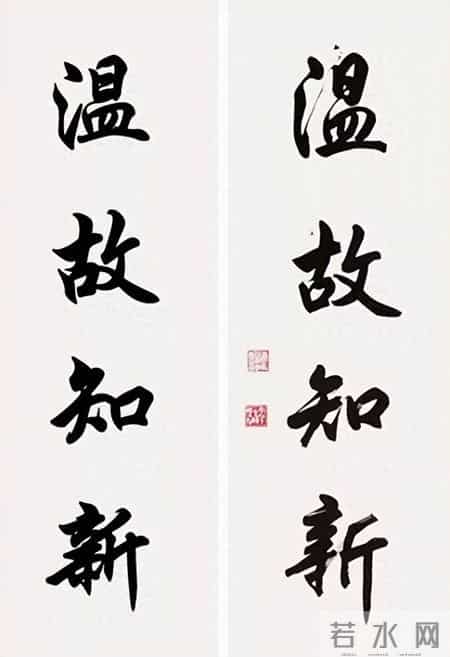 温故知新
温故知新
若水网